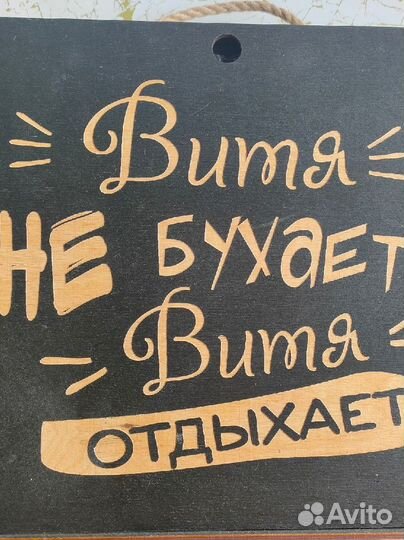 Витя
НЕ БУХАЕТ
Витя
ОТДЫХАЕТ
Avito